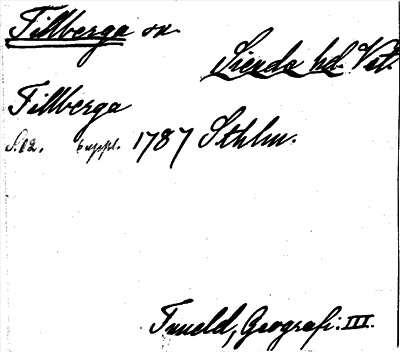 Tillberga sn
Siende hd. Vstm.
Tillberga
S. 82. 6 uppl. 1787 Sthlm.
Tuneld, Geografi. III.